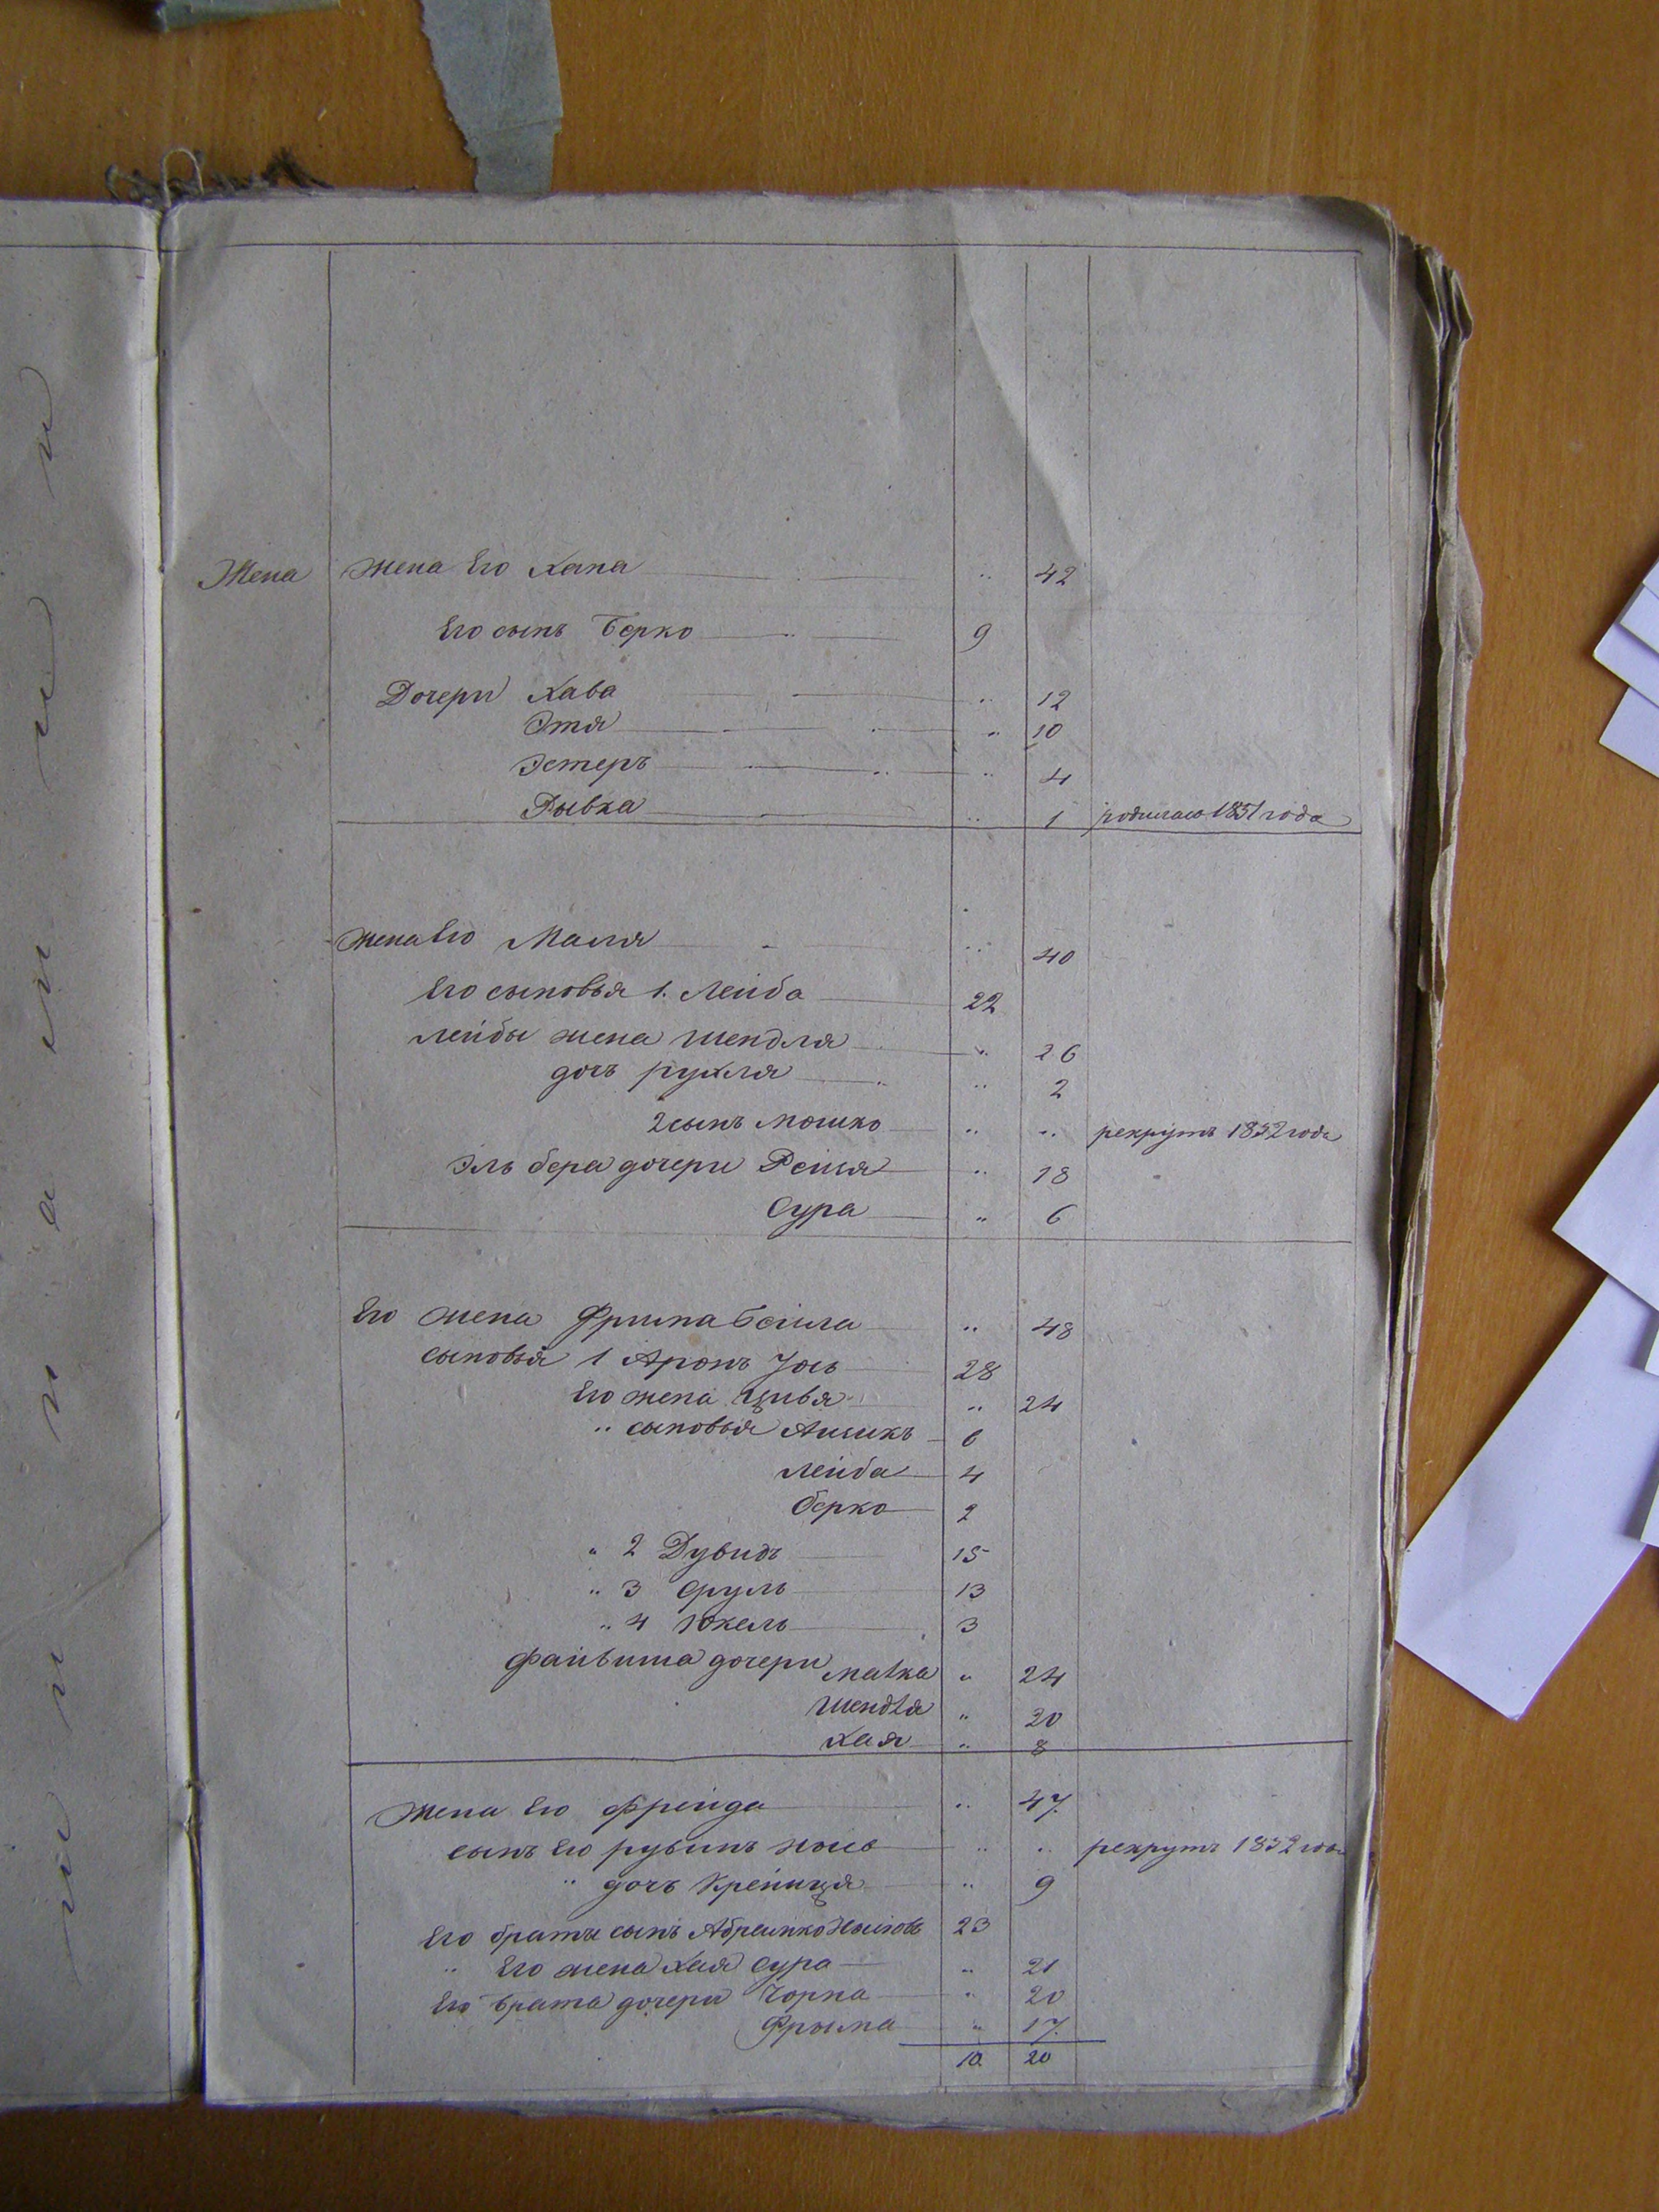 Жена Жена Его Хана .. 42
Его сынъ Берко 9
Дочери Хава .. 12
Этя .. 10
Эстеръ .. 4
Рывка .. 1 родилась 1851 года
Жена Его Маля .. 40
Его сыновья 1. Лейба 22
Лейбы жена Шендля .. 26
дочь рухля .. 2
2 сынъ Мошко .. .. рекрутъ 1852 года
Эль бера дочери Рейзя .. 18
Сура .. 6
Его жена Фрима Бейла .. 48
сыновья 1 Аронъ Йось 28
Его жена Цивья .. 24
.. сыновья Айзикъ 6
Лейба 4
Берко 2
" 2 Дувидъ 15
.. 3 Сруль 13
.. 4 Юкель 3
Файвиша дочери Малка " 24
Шендля .. 20
Хая .. 8
Жена Его Фрейда .. 47.
сынъ Его рувинъ .. .. рекрутъ 1852 года
.. дочь Крейнця .. 9
Его брата сынъ 23
.. Его жена Хая Сура .. 21
Его брата дочери Чорна " 20
Фрыма " 17.
10. 20